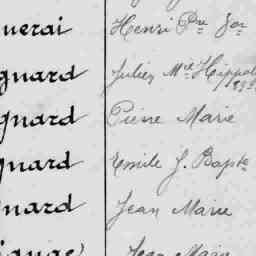 uerai Henri Pre Jan
gnard Julien Mie Hippol
gnard Pierre Marie
gnard Emile J. Bapte
gnard Jean Marie
Jean Marie